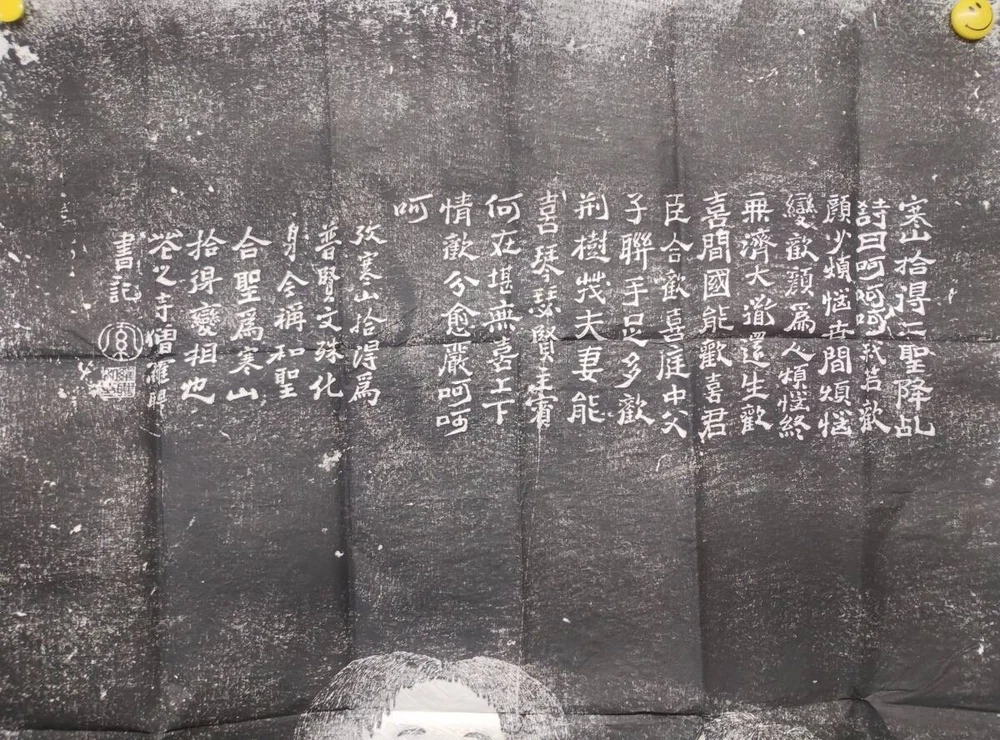 寒山拾得二聖降乩
詩曰呵呵呵我若歡
顔少煩惱世間煩惱
變歡顔爲人煩惱終
無濟大道還生歡
喜間國能歡喜君
臣合歡喜庭中父
子聯手足多歡
荆樹茂夫妻能
喜琴瑟賢主賓
何在堪無喜上下
情歡分愈嚴呵呵
呵
攷寒山拾得爲
普賢文殊化
身今稱和聖
合聖爲寒山
拾得變相也
花之寺僧羅聘
書記